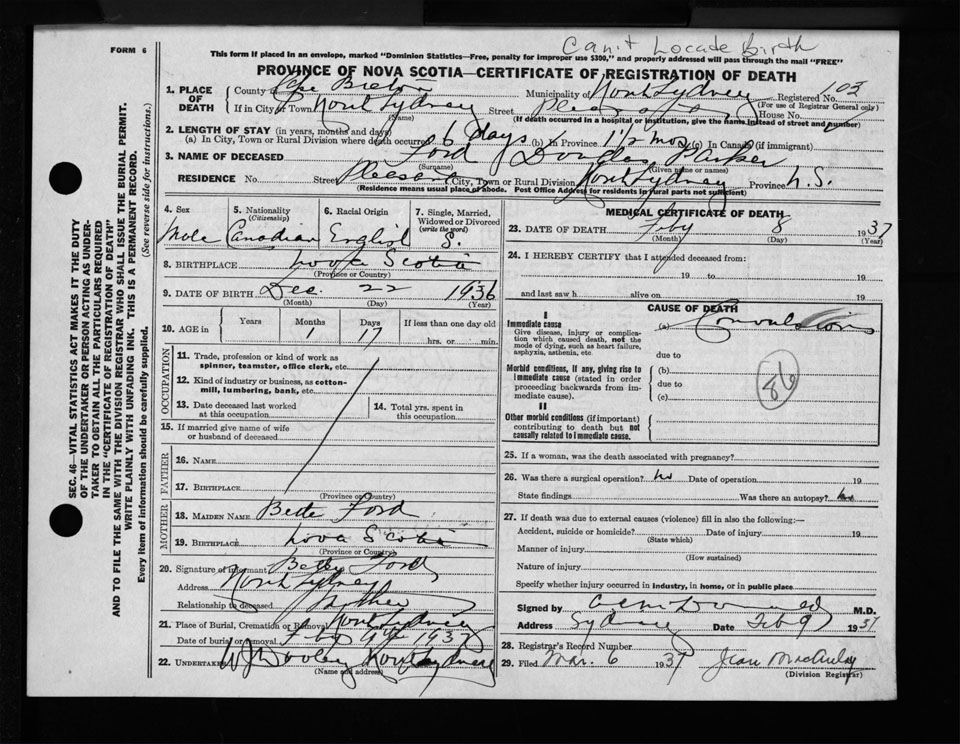 Can't Locate Birth
FORM 6
This form if placed in an envelope, marked "Dominion Statistics—Free, penalty for improper use $300," and properly addressed will pass through the mail "FREE"
PROVINCE OF NOVA SCOTIA—CERTIFICATE OF REGISTRATION OF DEATH
1. PLACE OF DEATH
County of Cape Breton Municipality of North Sydney Registered No. 103
(For use of Registrar General only)
If in City or Town North Sydney Street House No.
(Name) (If death occurred in a hospital or institution, give the name instead of street and number)
2. LENGTH OF STAY (in years, months and days)
(a) In City, Town or Rural Division where death occurred 6 days (b) In Province 1 1/2 mos (c) In Canada (if immigrant)
3. NAME OF DECEASED Ford Douglas Parker
(Surname) (Given name or names)
RESIDENCE No. Street City, Town or Rural Division North Sydney Province N.S.
(Residence means usual place of abode. Post Office Address for residents in rural parts not sufficient)
4. Sex
Male
5. Nationality
(Citizenship)
Canadian
6. Racial Origin
English
7. Single, Married, Widowed or Divorced
(write the word)
S.
8. BIRTHPLACE Nova Scotia
(Province or Country)
9. DATE OF BIRTH Dec. 22 1936
(Month) (Day) (Year)
10. AGE in Years Months Days If less than one day old
1 17 hrs. or min.
OCCUPATION
11. Trade, profession or kind of work as
spinner, teamster, office clerk, etc.
12. Kind of industry or business, as cotton-
mill, lumbering, bank, etc.
13. Date deceased last worked
at this occupation
14. Total yrs. spent in
this occupation
15. If married give name of wife
or husband of deceased
FATHER
16. NAME
17. BIRTHPLACE
(Province or Country)
MOTHER
18. MAIDEN NAME Bette Ford
19. BIRTHPLACE Nova Scotia
(Province or Country)
20. Signature of informant Betty Ford
Address North Sydney
Relationship to deceased Mother
21. Place of Burial, Cremation or Removal North Sydney
Date of burial or removal Feby 9th 1937
22. UNDERTAKER W J Dooley North Sydney
(Name and address)
MEDICAL CERTIFICATE OF DEATH
23. DATE OF DEATH Feby 8 1937
(Month) (Day) (Year)
24. I HEREBY CERTIFY that I attended deceased from:
19 to 19
and last saw h alive on 19
CAUSE OF DEATH
I
Immediate cause
Give disease, injury or complica-
tion which caused death, not the
mode of dying, such as heart failure,
asphyxia, asthenia, etc.
(a) Convulsions
due to
Morbid conditions, if any, giving rise to
immediate cause (stated in order
proceeding backwards from im-
mediate cause).
(b)
due to
(c)
86
II
Other morbid conditions (if important)
contributing to death but not
causally related to immediate cause.
25. If a woman, was the death associated with pregnancy?
26. Was there a surgical operation? No Date of operation 19
State findings Was there an autopsy? No
27. If death was due to external causes (violence) fill in also the following:—
Accident, suicide or homicide? Date of injury 19
(State which)
Manner of injury
(How sustained)
Nature of injury
Specify whether injury occurred in industry, in home, or in public place
Signed by M.D.
Address Sydney Date Feb 9 1937
28. Registrar's Record Number
29. Filed Mar. 6 1937 Jean MacAulay
(Division Registrar)
SEC. 46—VITAL STATISTICS ACT MAKES IT THE DUTY
OF THE UNDERTAKER OR PERSON ACTING AS UNDER-
TAKER TO OBTAIN ALL THE PARTICULARS REQUIRED
IN THE "CERTIFICATE OF REGISTRATION OF DEATH"
AND TO FILE THE SAME WITH THE DIVISION REGISTRAR WHO SHALL ISSUE THE BURIAL PERMIT.
WRITE PLAINLY WITH UNFADING INK. THIS IS A PERMANENT RECORD.
Every item of information should be carefully supplied. (See reverse side for instructions.)